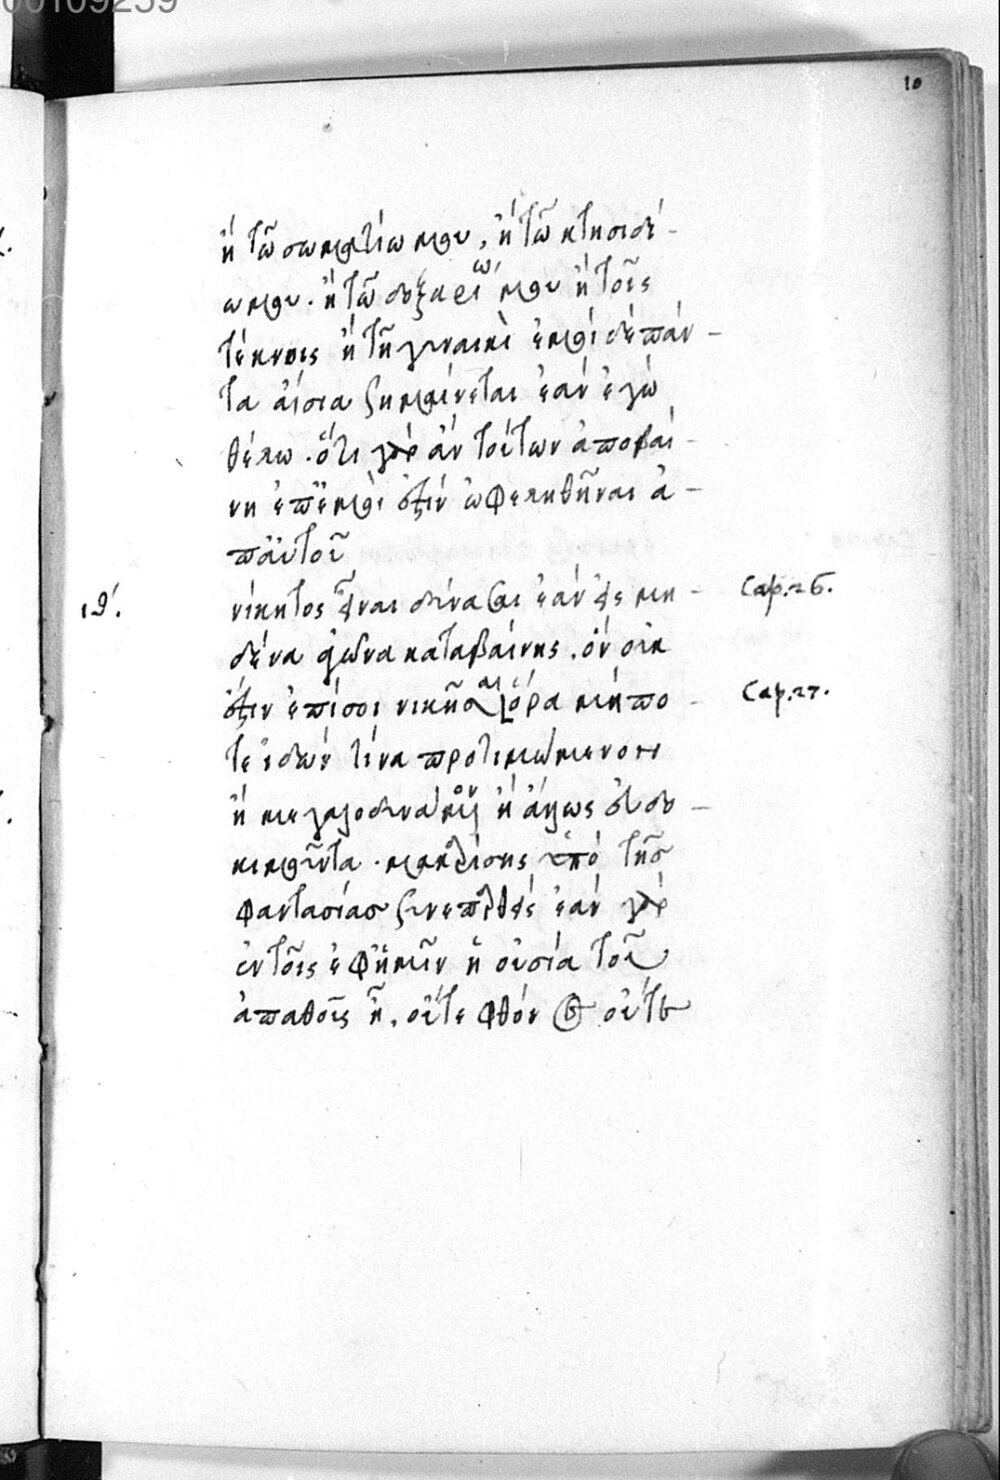 00109259
10
ἢ τῶ σωματίω μου, ἢ τῶ κτησιδί-
ω μου. ἢ τῶ δοξαρίω μου ἢ τοῖς
τέκνοις ἢ τῆ γυναικὶ ἐμοὶ δὲ πάν-
τα αἴσια σημαίνεται ἐὰν ἐγὼ
θέλω. ὅτι γὰρ ἂν τούτων ἀποβαί-
νη ἐπ' ἐμοί ἐστιν ὠφεληθῆναι ἀ-
π' αὐτοῦ
ιθ'. νίκητος εἶναι δύνασαι ἐὰν εἰς μη- Cap. 26.
δένα ἀγῶνα καταβαίνης. ὃν οὐκ
ἔστιν ἐπὶ σοὶ νικῆσαι ὅρα μήπο- Cap. 27.
τε ἰδών τινα προτιμώμενον
ἢ μέγα δυνάμενον ἢ ἄλλως εὐδο-
κιμοῦντα. μακαρίσης ὑπὸ τῆς
φαντασίας συνεπελθεὶς ἐὰν γὰρ
ἐν τοῖς ἐφ' ἡμῖν ἡ οὐσία τοῦ
ἀγαθοῦ ἦ, οὔτε φθόνος οὔτε